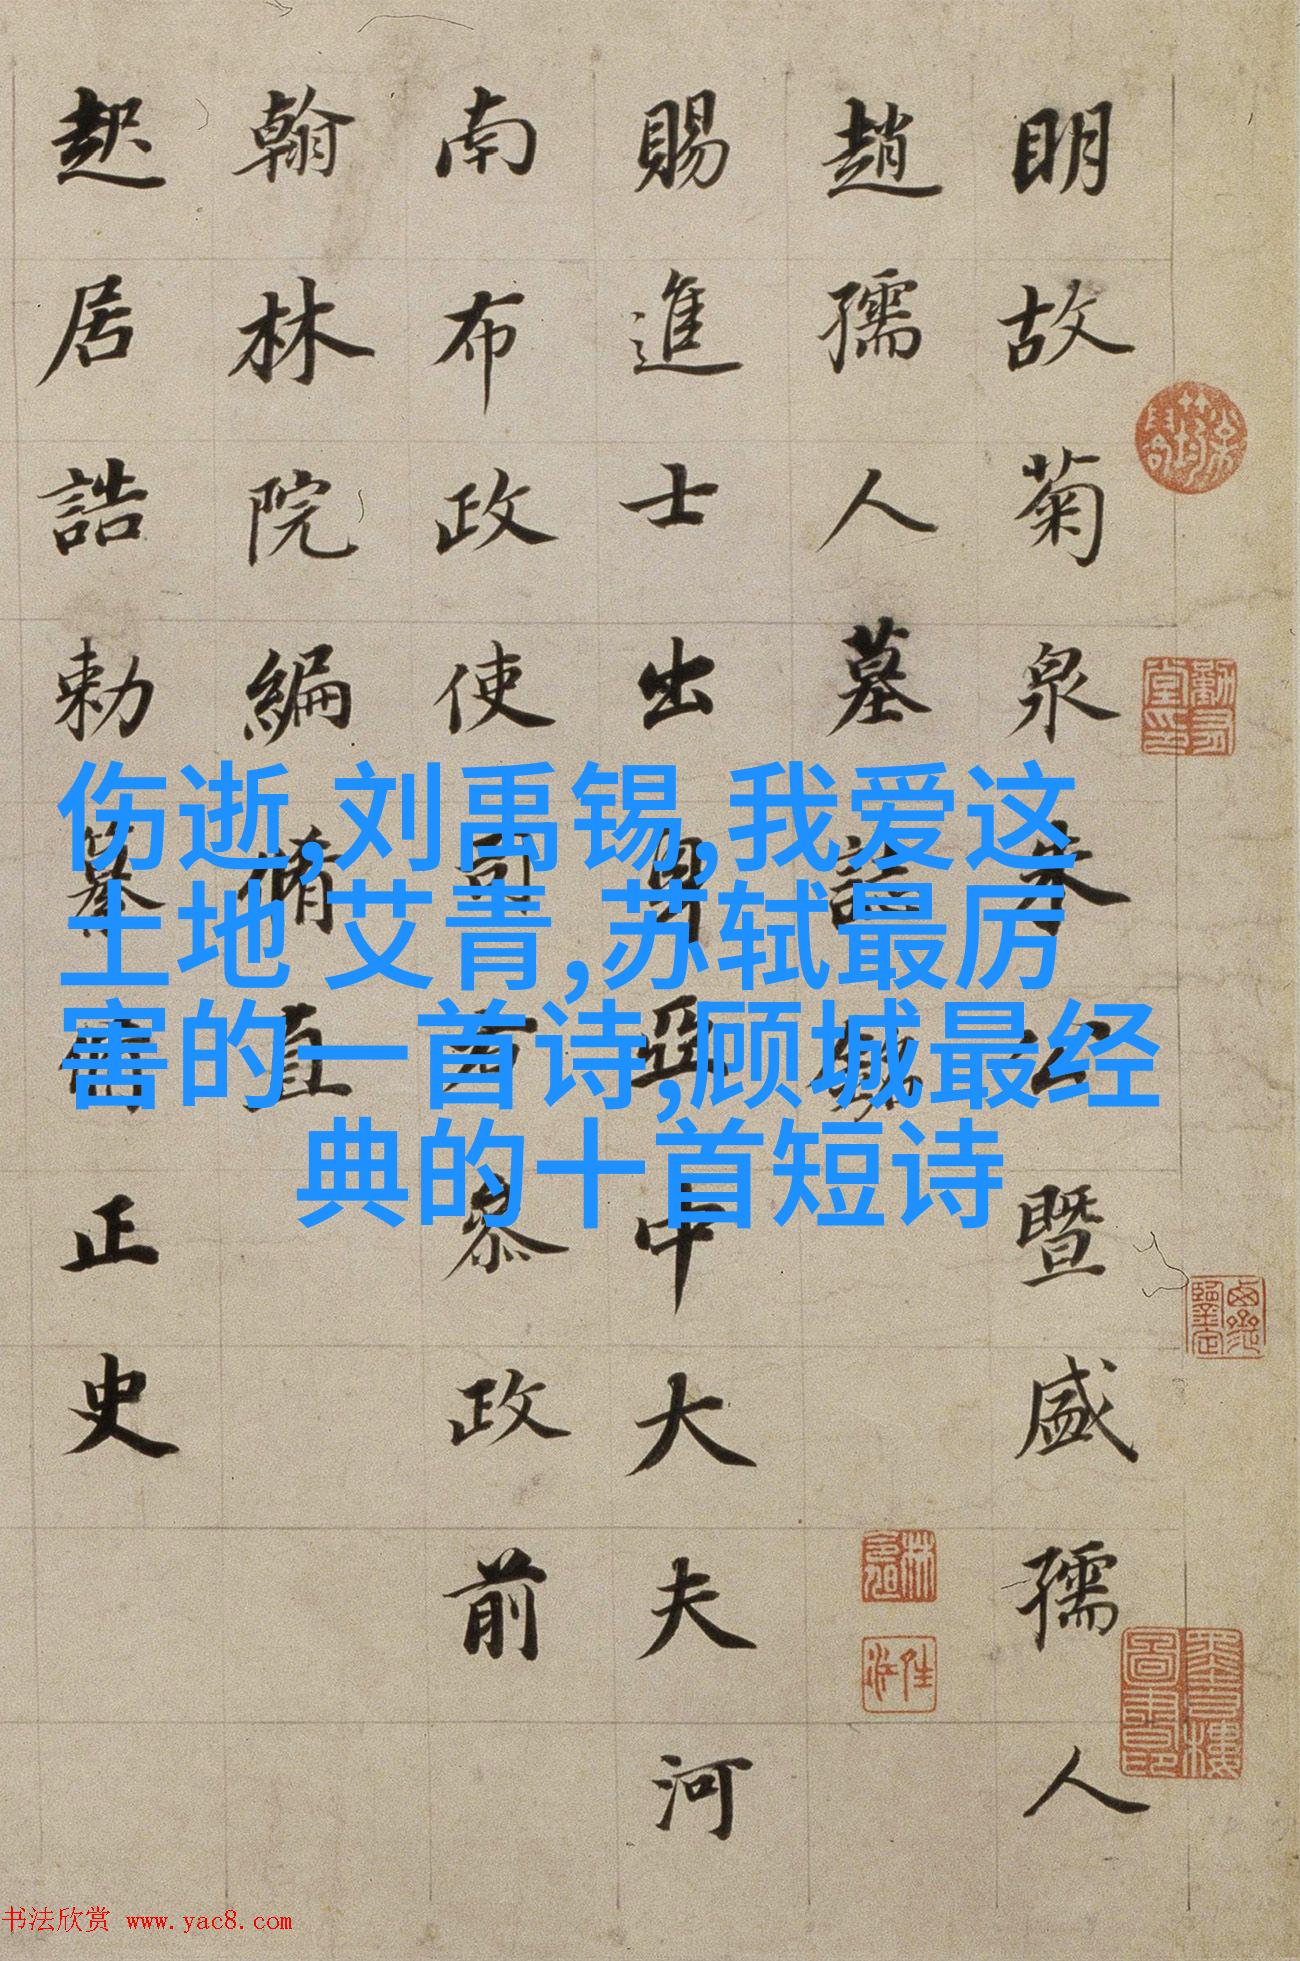 明故菊泉朱公暨盛孺人
趙孺人墓誌銘
賜進士出身亞中大夫河
南布政使司右叅政前
翰林院編脩直
起居誥勅纂脩正史
伤逝,刘禹锡,我爱这
土地 艾青,苏轼最厉
害的一首诗,顾城最经
典的十首短诗
书法欣赏 www.yac8.com